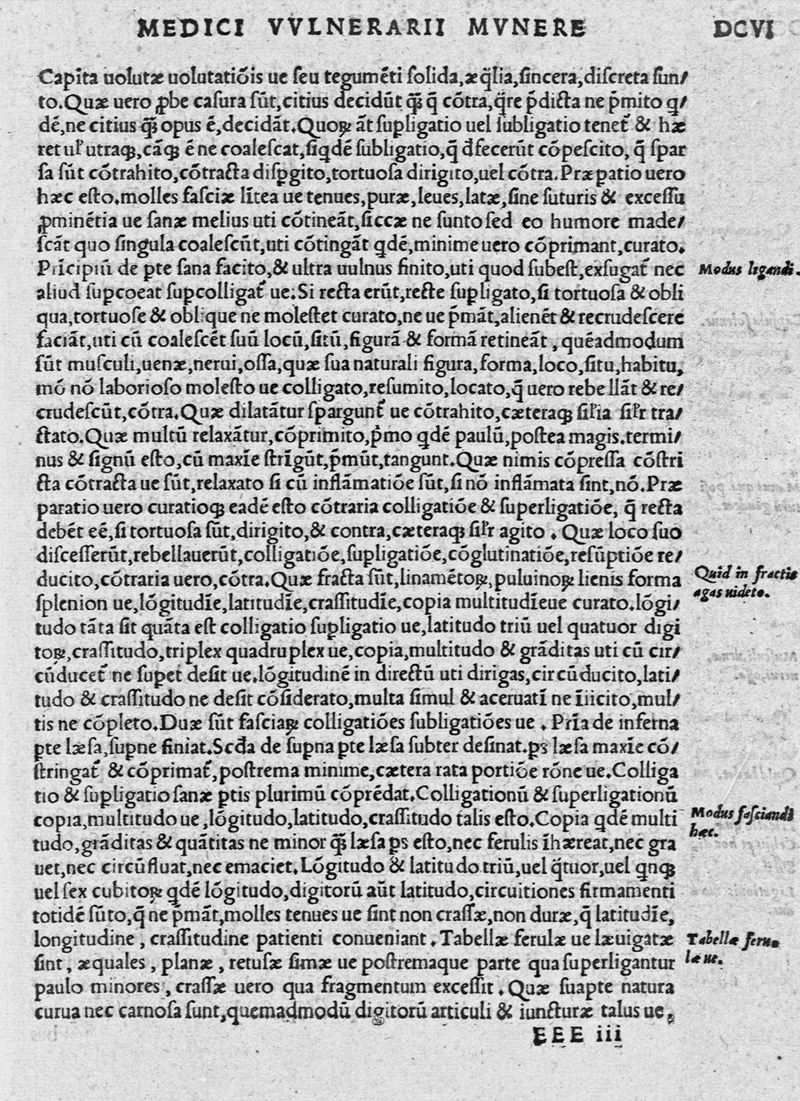 MEDICI VVLNERARII MVNERE DCVI
Capita uolutæ uolutatiōis ue seu tegumēti solida, æq̄lia, sincera, discreta sun/
to. Quæ uero ꝓbe casura sūt, citius decidūt q̄ȝ q̄ cōtra, q̄re p̄dicta ne p̄mito q/
dē, ne citius q̄ȝ opus ē, decidāt. Quoꝝ āt supligatio uel subligatio tenet̄ & hæ
ret ul̄ utraqꝫ, cāqꝫ ē ne coalescat, siqdē subligatio, q̄ đfecerūt cōpescito, q̄ spar
sa sūt cōtrahito, cōtracta dispgito, tortuosa dirigito, uel cōtra. Præpatio uero
hæc esto. molles fasciæ līteæ ue tenues, puræ, leues, latæ, sine suturis & excessu
ꝓminētia ue sanæ melius uti cōtineāt, siccæ ne sunto sed eo humore made/
scāt quo singula coalescūt, uti cōtingāt qdē, minime uero cōprimant, curato.
Prīcipiū de pte sana facito, & ultra uulnus finito, uti quod subest, exsugat̄ nec
Modus ligandi.
aliud supcoeat supcolligat̄ ue. Si recta erūt, recte supligato, si tortuosa & obli
qua, tortuose & oblique ne molestet curato, ne ue p̄māt, alienēt & recrudescere
faciāt, uti cū coalescēt suū locū, sitū, figurā & formā retineāt, quēadmodum
sūt musculi, uenæ, nerui, ossa, quæ sua naturali figura, forma, loco, situ, habitu,
mō nō laborioso molesto ue colligato, resumito, locato, q̄ uero rebellāt & re/
crudescūt, cōtra. Quæ dilatātur spargunt̄ ue cōtrahito, cæteraqꝫ sil̄ia sil̄r tra/
ctato. Quæ multū relaxātur, cōprimito, p̄mo qdē paulū, postea magis. termi/
nus & signū esto, cū maxīe strīgūt, p̄mūt, tangunt. Quæ nimis cōpressa cōstri
cta cōtracta ue sūt, relaxato si cū inflāmatiōe sūt, si nō inflāmata sint, nō. Præ
paratio uero curatioqꝫ eadē esto cōtraria colligatiōe & superligatiōe, q̄ recta
debēt eē, si tortuosa sūt, dirigito, & contra, cæteraqꝫ sil̄r agito. Quæ loco suo
discesserūt, rebellauerūt, colligatiōe, supligatiōe, cōglutinatiōe, resūptiōe re/
ducito, cōtraria uero, cōtra. Quæ fracta sūt, linamētoꝝ, puluinoꝝ lienis forma
Quid in fractis
agas uideto.
splenion ue, lōgitudīe, latitudīe, crassitudīe, copia multitudīeue curato. lōgi/
tudo tāta sit quāta est colligatio supligatio ue, latitudo triū uel quatuor digi
toꝝ, crassitudo, triplex quadruplex ue, copia, multitudo & grāditas uti cū cir/
cūducet̄ ne supet desit ue. lōgitudinē in directū uti dirigas, circūducito, lati/
tudo & crassitudo ne desit cōsiderato, multa simul & aceruatī ne īiicito, mul/
tis ne cōpleto. Duæ sūt fasciaꝝ colligatiōes subligatiōes ue. Prīa de inferna
pte læsa, supne finiat. Scđa de supna pte læsa subter desinat. ps læsa maxīe cō/
stringat̄ & cōprimat̄, postrema minime, cætera rata portiōe rōne ue. Colliga
tio & supligatio sanæ ptis plurimū cōprēdat. Colligationū & superligationū
copia, multitudo ue, lōgitudo, latitudo, crassitudo talis esto. Copia qdē multi
Modus fasciandi
hæc.
tudo, grāditas & quātitas ne minor q̄ȝ læsa ps esto, nec ferulis īhæreat, nec gra
uet, nec circūfluat, nec emaciet. Lōgitudo & latitudo triū, uel q̄tuor, uel qnqꝫ
uel sex cubitoꝝ qdē lōgitudo, digitorū aūt latitudo, circuitiones firmamenti
totidē sūto, q̄ ne p̄māt, molles tenues ue sint non crassæ, non duræ, q̄ latitudīe,
longitudine, crassitudine patienti conueniant. Tabellæ ferulæ ue læuigatæ
Tabellæ feru
læ ue.
sint, æquales, planæ, retusæ simæ ue postremaque parte qua superligantur
paulo minores, crassæ uero qua fragmentum excessit. Quæ suapte natura
curua nec carnosa sunt, quemadmodū digitorū articuli & iuncturæ talus ue,
EEE iii